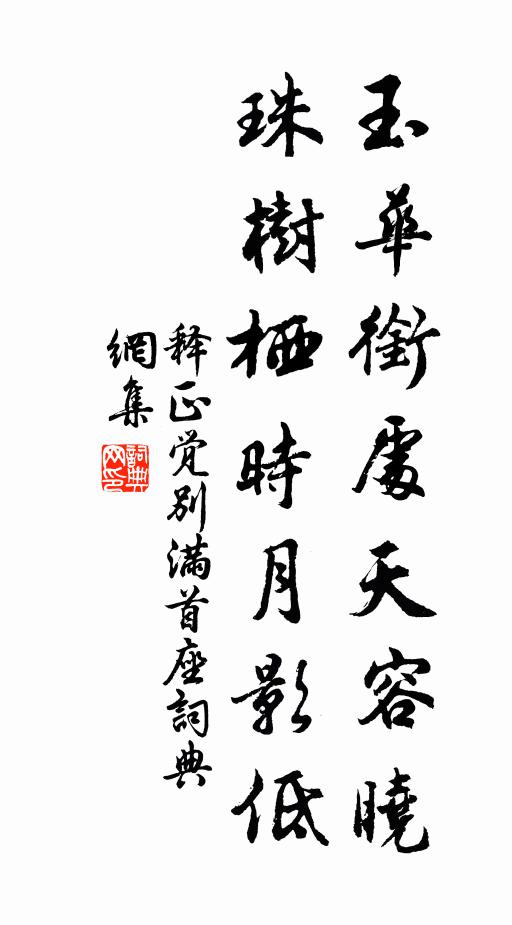 玉華銜處天容曉
珠樹栖時月影低
释正觉别满首座詞典
網集
詞典
网印